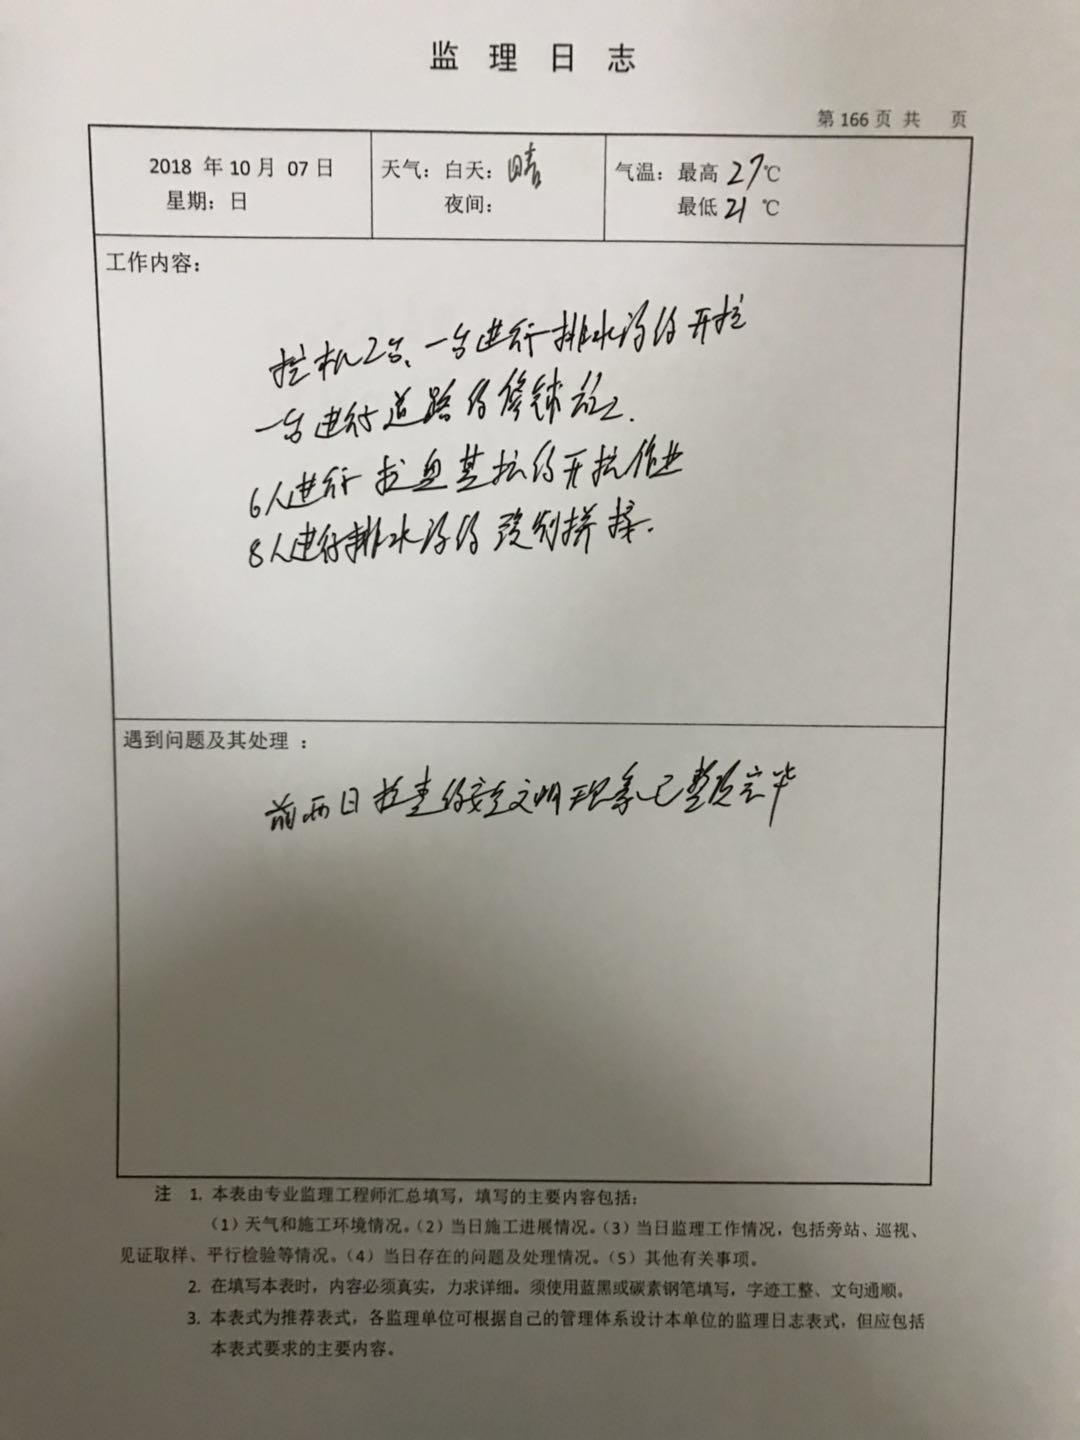 监理日志
第 166 页 共 页
2018 年 10 月 07 日
星期：日
天气：白天：晴
夜间：
气温：最高 27℃
最低 21 ℃
工作内容：
挖机2台、一台进行排水沟的开挖
一台进行道路的修铺施工.
6人进行 基坑的开挖作业
8人进行排水沟的 拼接.
遇到问题及其处理 ：
前两日检查的安全文明现象已整改完毕
注 1. 本表由专业监理工程师汇总填写，填写的主要内容包括：
（1）天气和施工环境情况。（2）当日施工进展情况。（3）当日监理工作情况，包括旁站、巡视、
见证取样、平行检验等情况。（4）当日存在的问题及处理情况。（5）其他有关事项。
2. 在填写本表时，内容必须真实，力求详细。须使用蓝黑或碳素钢笔填写，字迹工整、文句通顺。
3. 本表式为推荐表式，各监理单位可根据自己的管理体系设计本单位的监理日志表式，但应包括
本表式要求的主要内容。